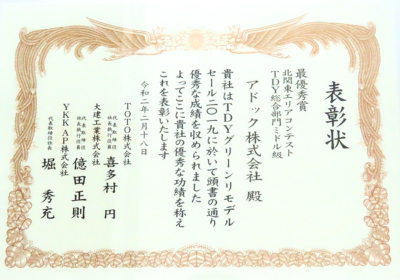 表彰状
最優秀賞
北関東エリアコンテスト
TDY総合部門ミドル級
アドック株式会社 殿
貴社はTDYグリーンリモデル
セール二〇一九に於いて頭書の通り
優秀な成績を収められました
よってここに貴社の優秀な功績を称え
これを表彰いたします
令和二年二月十八日
TOTO株式会社
代表取締役
社長執行役員
喜多村 円
大建工業株式会社
代表取締役
社長執行役員
億田正則
YKK AP株式会社
代表取締役社長
堀 秀充